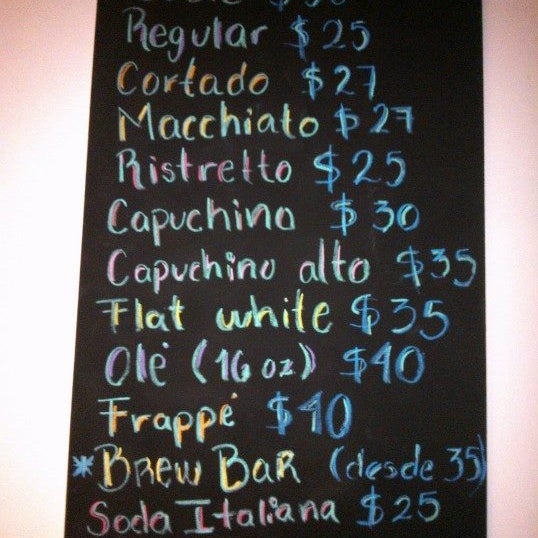 Regular $25
Cortado $27
Macchiato $27
Ristretto $25
Capuchino $30
Capuchino alto $35
Flat white $35
Olé (16 oz) $40
Frappé $40
*Brew Bar (desde 35)
Soda Italiana $25